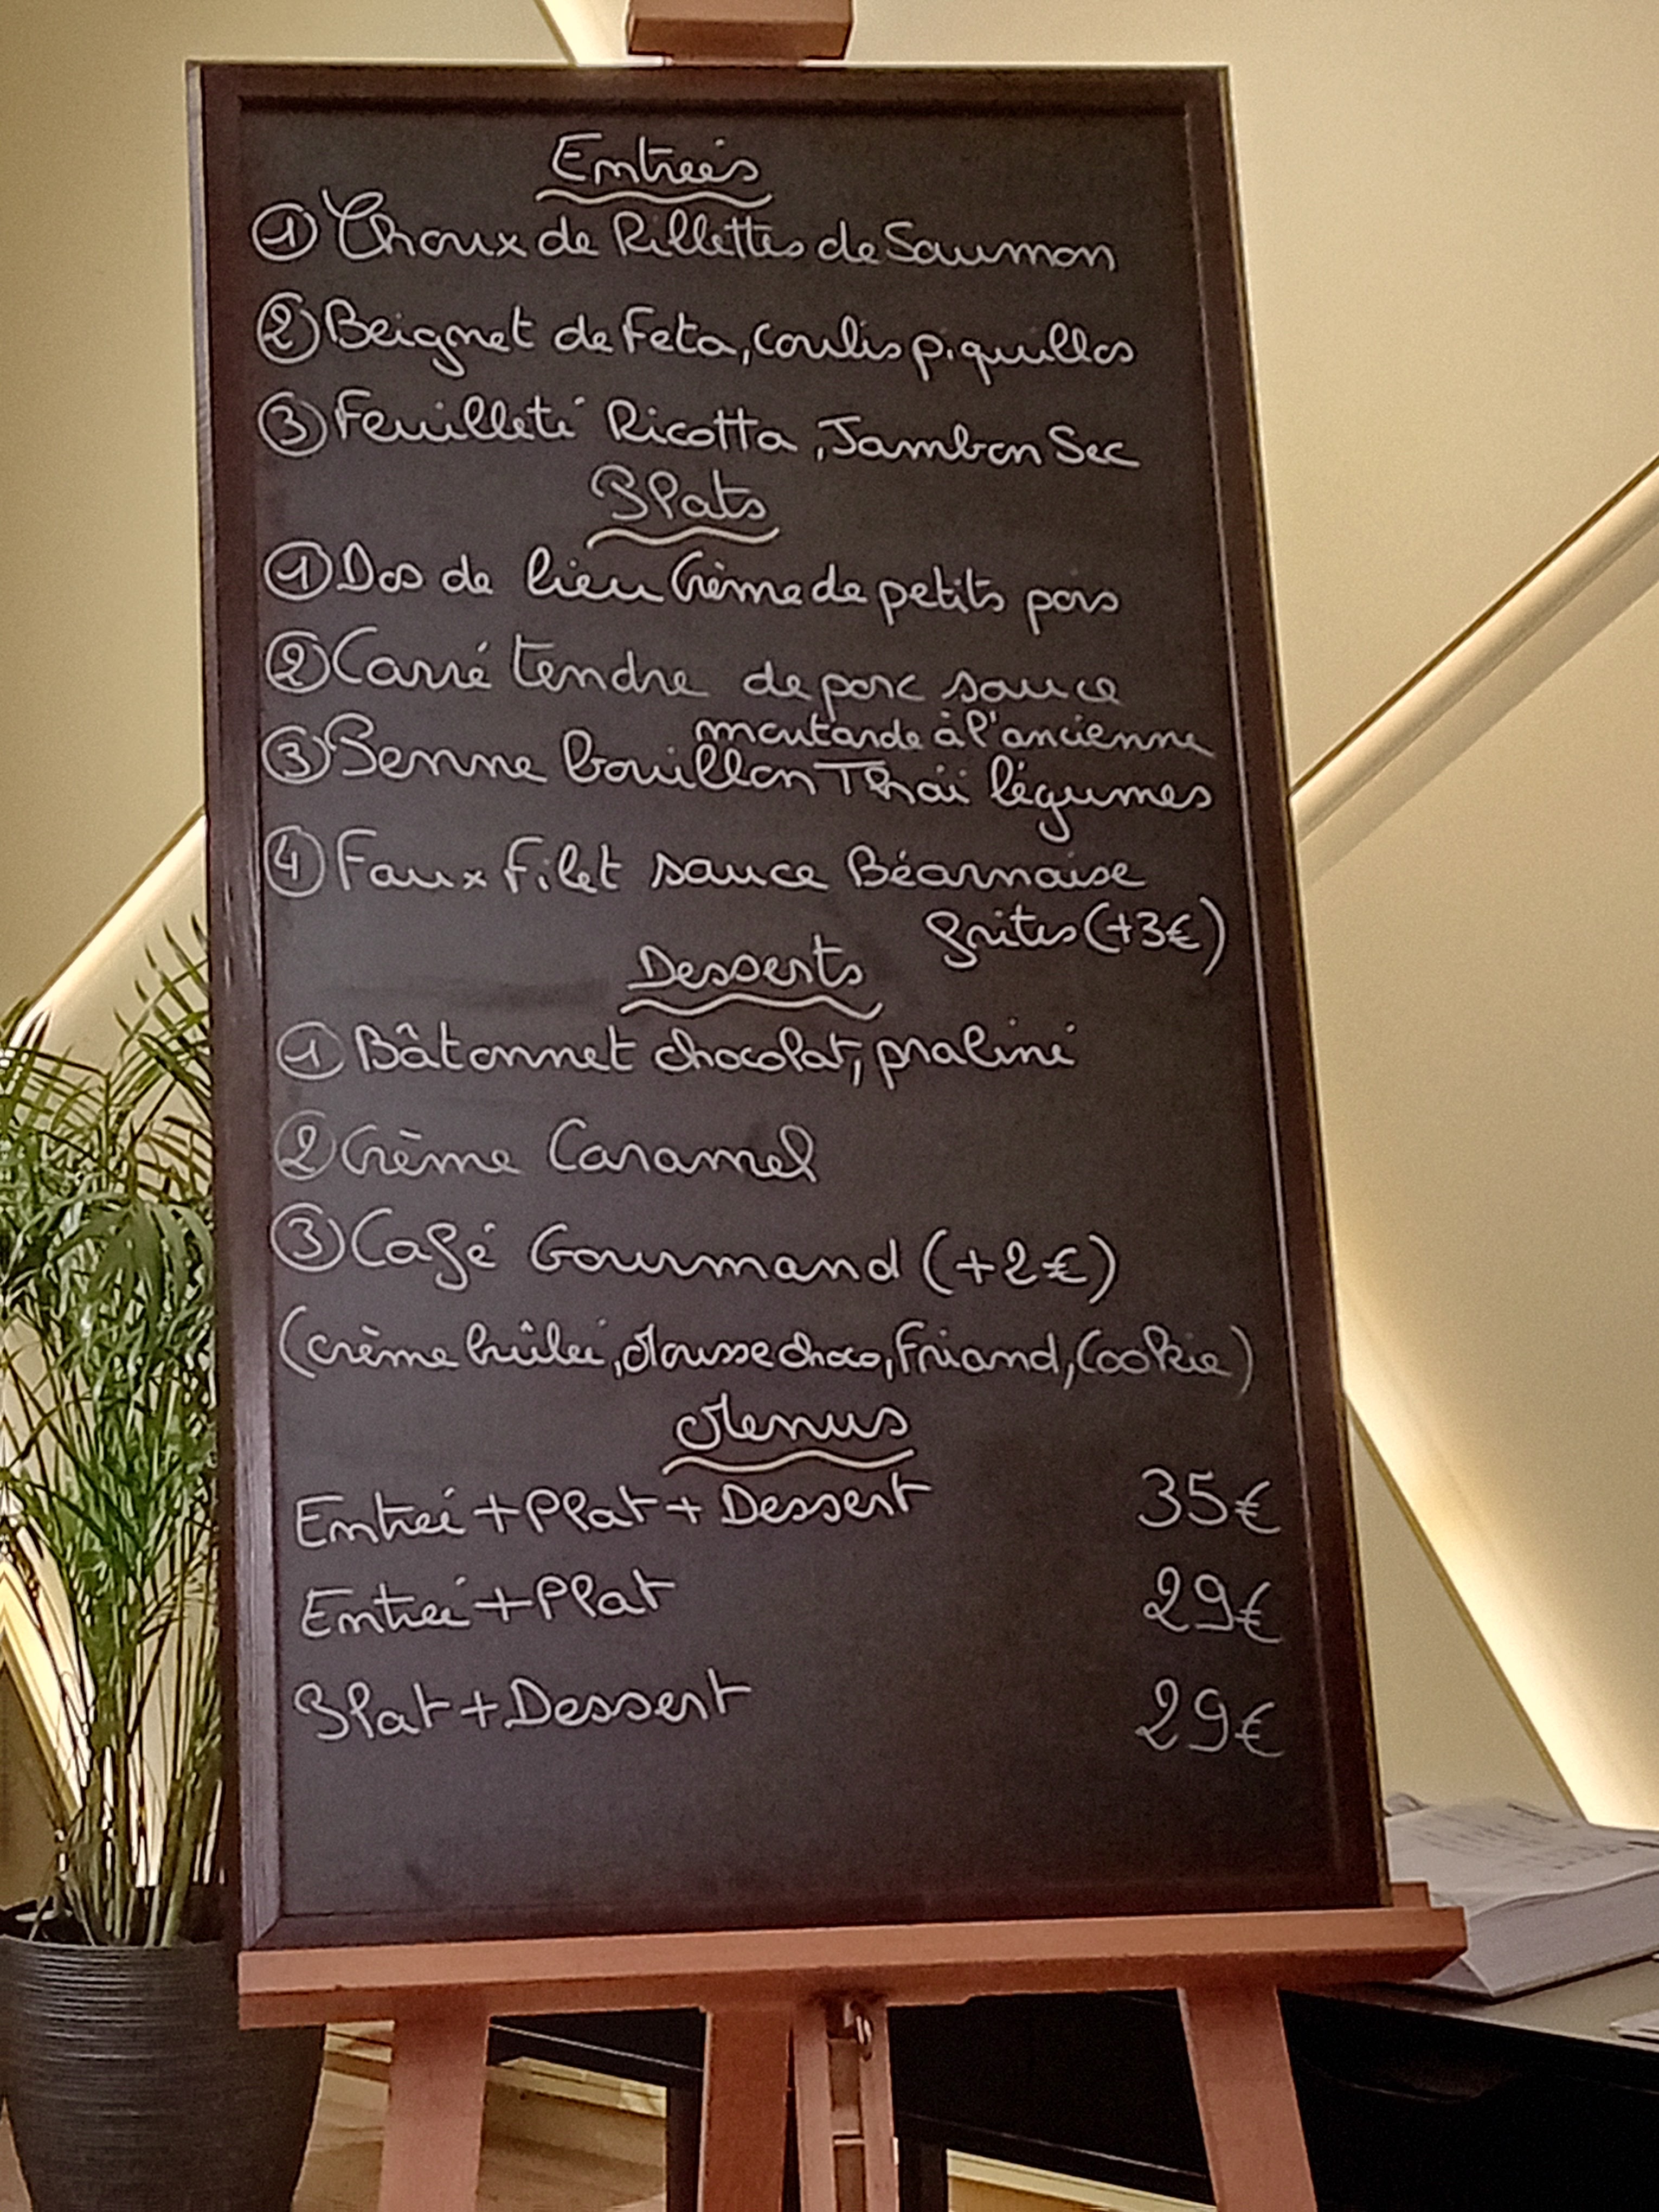 Entrées
① Choux de Rillettes de Saumon
② Beignet de Feta, coulis piquillos
③ Feuilleté Ricotta, Jambon Sec
Plats
① Dos de lieu Crème de petits pois
② Carré tendre de porc sauce
moutarde à l'ancienne
③ Penne bouillon Thaï légumes
④ Faux Filet sauce Béarnaise
frites (+3€)
Desserts
① Bâtonnet chocolat, praliné
② Crème Caramel
③ Café Gourmand (+2€)
(crème brûlée, Mousse choco, Friand, Cookie)
Menus
Entrée + Plat + Dessert 35€
Entrée + Plat 29€
Plat + Dessert 29€